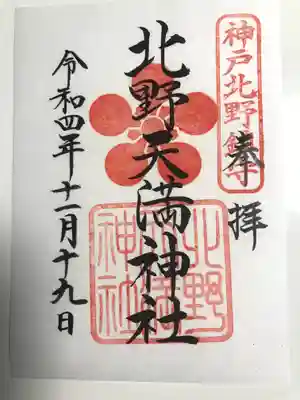 神戸北野鎮守
奉拝
北野天満神社
北野天満神社
令和四年十一月十九日